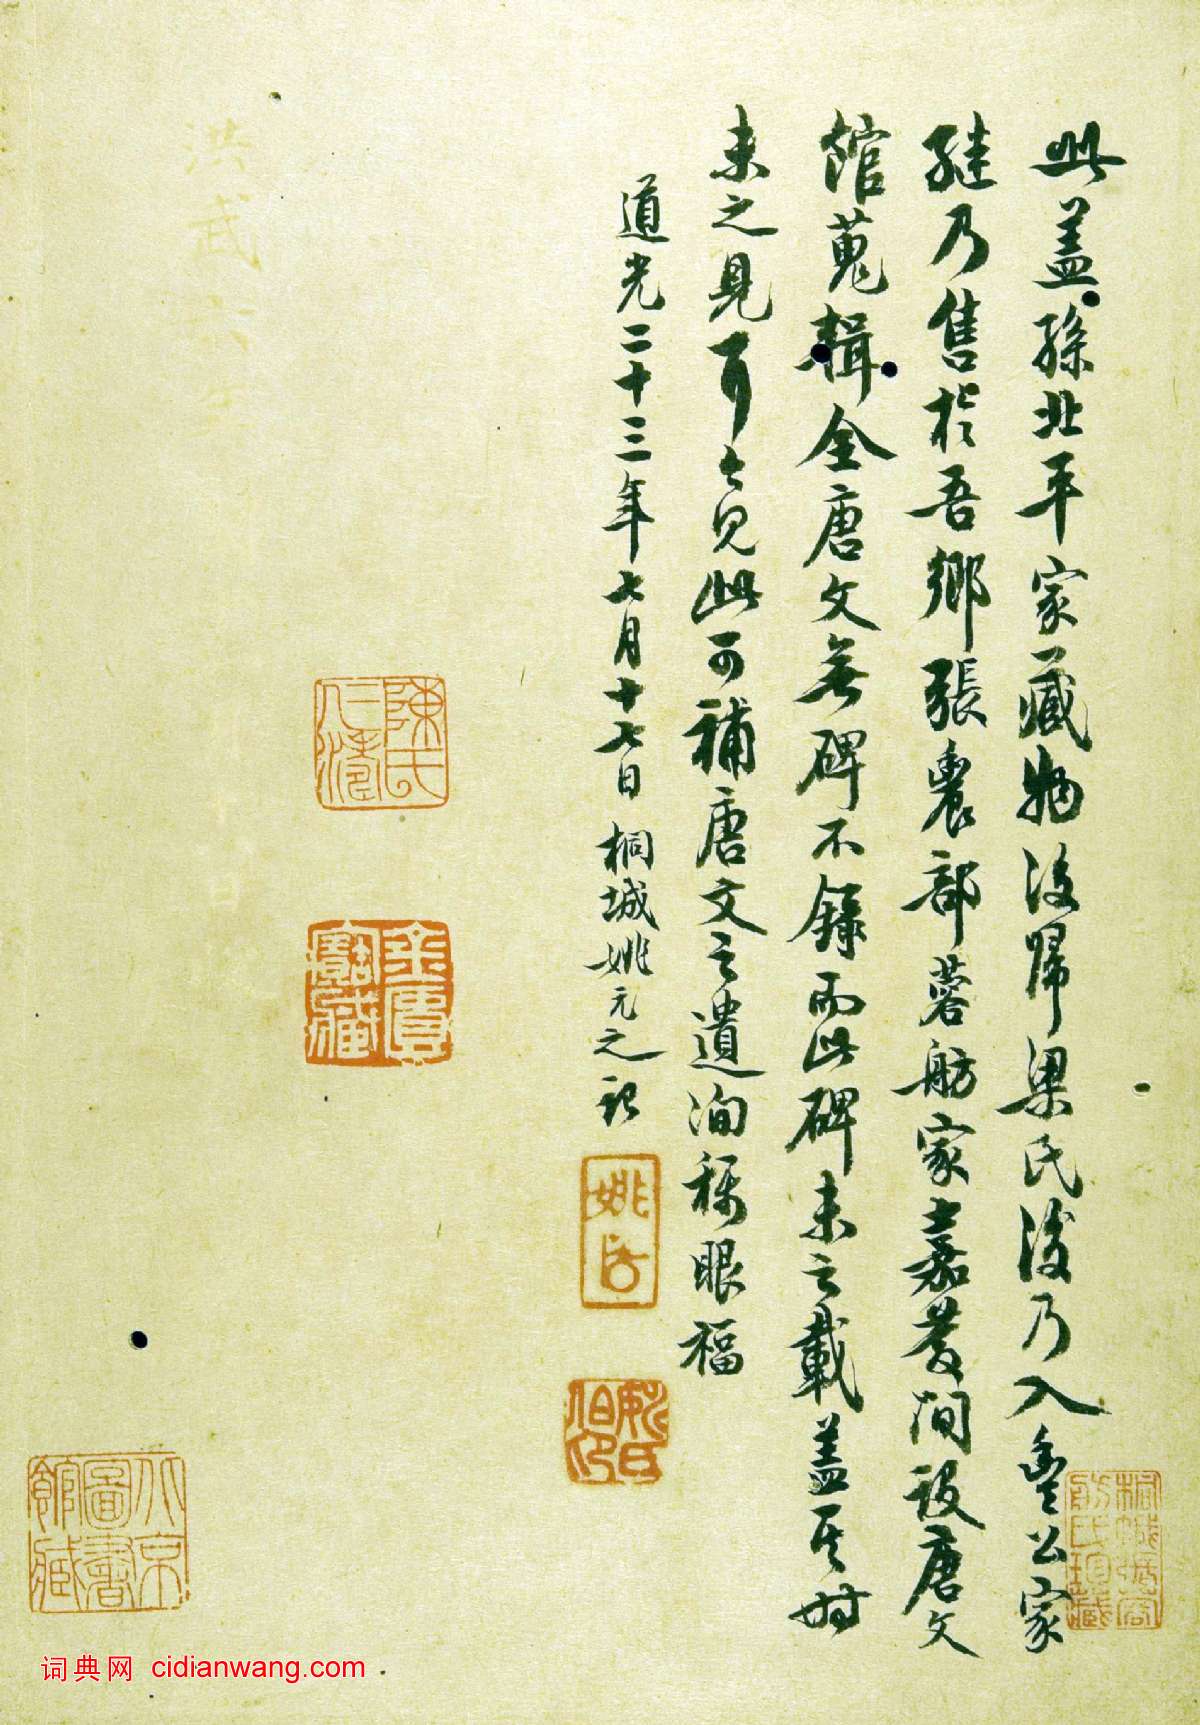 此蓋孫北平家藏物後歸梁氏後乃入豐公家
繼乃售於吾鄉張農部蓉舫家嘉慶間設唐文
館蒐輯全唐文無碑不錄而此碑未之載蓋其時
未之見耳今見此可補唐文之遺洵稱眼福
道光二十三年七月十七日桐城姚元之記
姚
伯印
陳氏
寶藏
桐城張蓉舫氏珍藏
北京圖書館藏
洪武
词典网 cidianwang.com